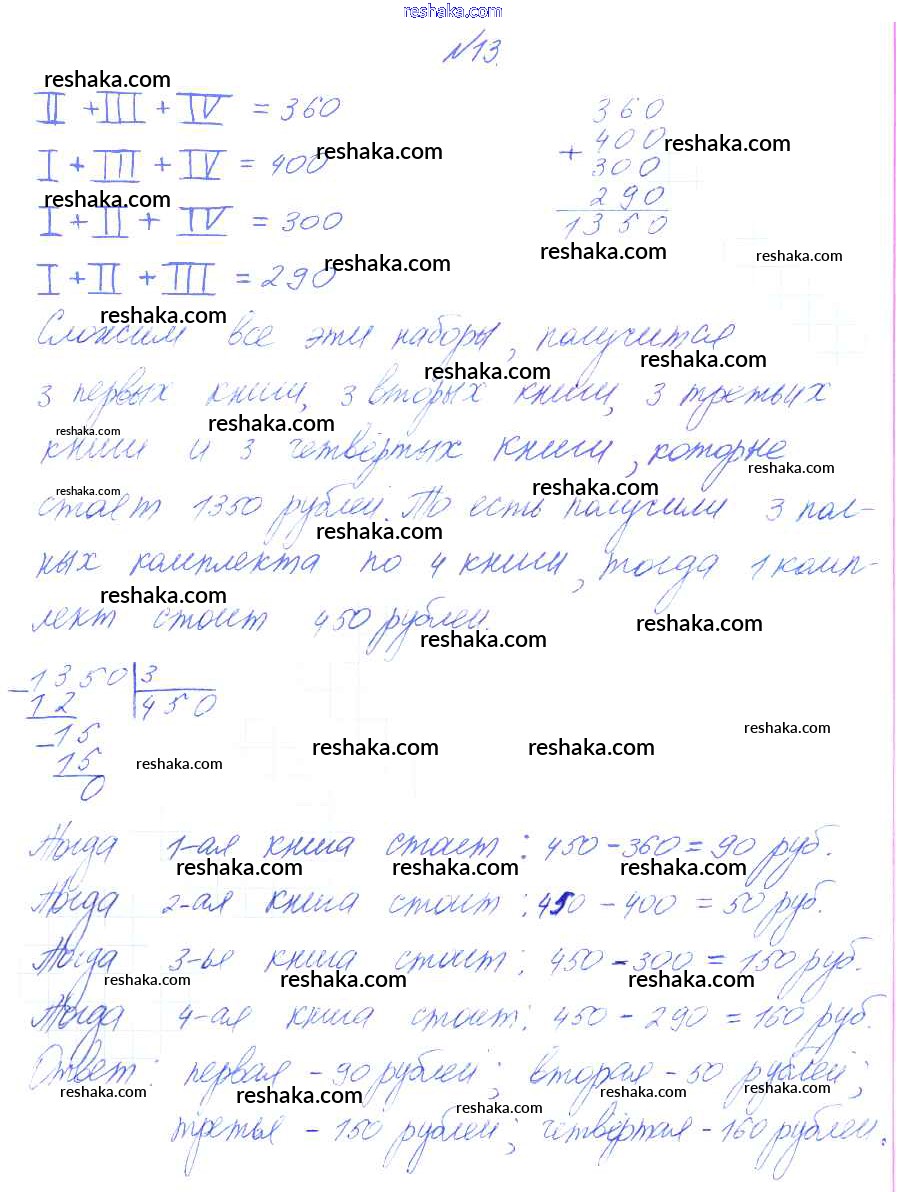 reshaka.com
№13.
reshaka.com
II + III + IV = 360
I + III + IV = 400
reshaka.com
reshaka.com
I + II + IV = 300
I + II + III = 290
reshaka.com
360
+ 400
reshaka.com
300
290
1350
reshaka.com
reshaka.com
reshaka.com
Сложим все эти наборы, получится
reshaka.com
reshaka.com
3 первых книги, 3 вторых книги, 3 третьих
reshaka.com
reshaka.com
книги и 3 четвёртых книги, которые
reshaka.com
reshaka.com
reshaka.com
стоят 1350 рублей. То есть получили 3 пол-
reshaka.com
ных комплекта по 4 книги, тогда 1 комп-
reshaka.com
лект стоит 450 рублей.
reshaka.com
reshaka.com
- 1350 | 3
12 450
- 15
15
0
reshaka.com
reshaka.com
reshaka.com
reshaka.com
Тогда 1-ая книга стоит: 450 - 360 = 90 руб.
reshaka.com
reshaka.com
reshaka.com
Тогда 2-ая книга стоит: 450 - 400 = 50 руб.
Тогда 3-ья книга стоит: 450 - 300 = 150 руб.
reshaka.com
reshaka.com
reshaka.com
Тогда 4-ая книга стоит: 450 - 290 = 160 руб.
Ответ: первая - 90 рублей; вторая - 50 рублей;
reshaka.com
reshaka.com
reshaka.com
reshaka.com
третья - 150 рублей; четвёртая - 160 рублей.